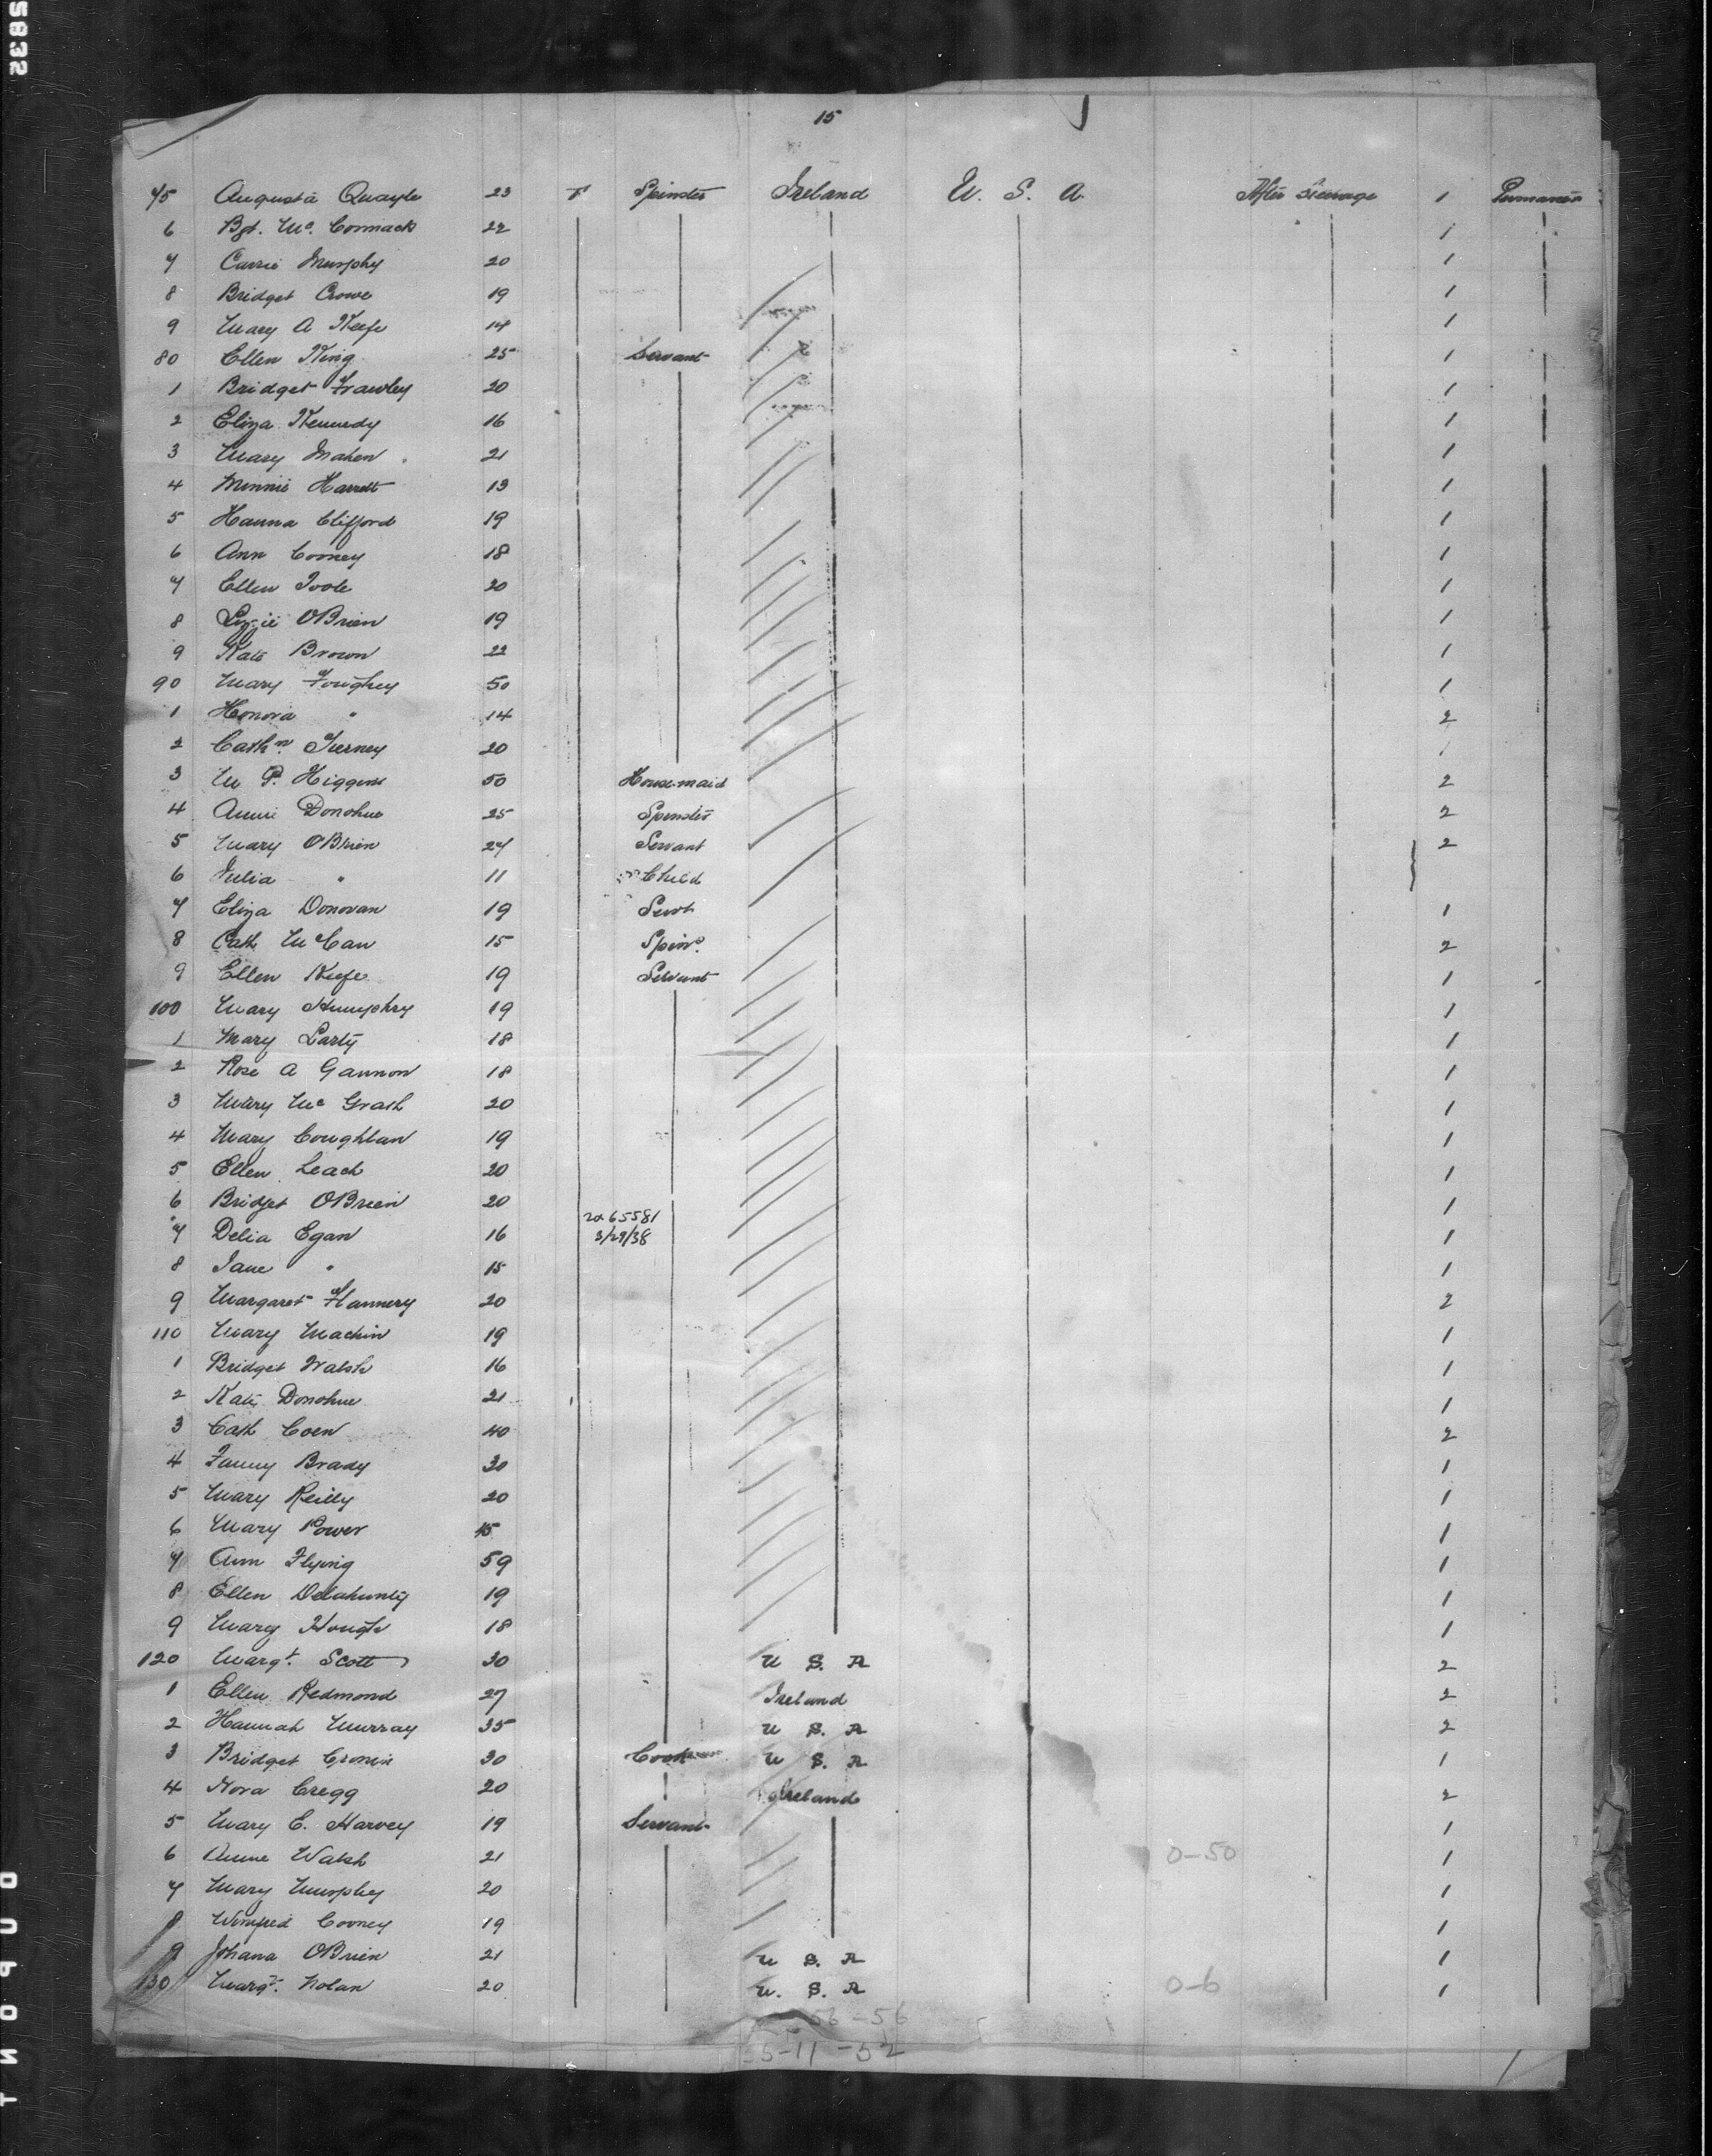 5832
15
75 Augusta Quayle 23 F Spinster Ireland U. S. A. After Steerage 1 Permanent
6 Bgt. Mc. Cormack 22 1
7 Carrie Murphy 20 1
8 Bridget Crowe 19 1
9 Mary A Keefe 14 1
80 Ellen King 25 Servant 1
1 Bridget Frawley 20 1
2 Eliza Kennedy 16 1
3 Mary Mahon 21 1
4 Minnie 1
5 Hanna Clifford 19 1
6 Ann Cooney 18 1
7 Ellen Toole 20 1
8 Lizzie OBrien 19 1
9 Kate Brown 22 1
90 Mary 50 1
1 Honora " 14 2
2 Cathn. Tierney 20 1
3 M P. Higgins 50 House-maid 2
4 Annie Donohue 25 Spinster 2
5 Mary OBrien 24 Servant 2
6 Julia " 11 Child
7 Eliza Donovan 19 Servt 1
8 Cath McCan 15 Spinr. 2
9 Ellen Keefe 19 Servant 1
100 Mary Humphry 19 1
1 Mary 18 1
2 Rose A Gannon 18 1
3 Mary Mc Grath 20 1
4 Mary Coughlan 19 1
5 Ellen Leach 20 1
6 Bridget OBrien 20 1
2x65581
7 Delia Egan 16 3/29/38 1
8 Jane " 15 1
9 Margaret Flannery 20 2
110 Mary Machin 19 1
1 Bridget Walsh 16 1
2 Kate Donohue 21 1
3 Cath Coen 40 2
4 Fanny Brady 30 1
5 Mary Reilly 20 1
6 Mary Power 15 1
7 Ann 59 1
8 Ellen Delahunty 19 1
9 Mary Hough 18 1
120 Margt. Scott 30 U S. A 2
1 Ellen Redmond 27 Ireland 2
2 Hannah Murray 35 U S. A 2
3 Bridget Cronin 30 Cook U S. A 1
4 Nora Cregg 20 Ireland 2
5 Mary E. Harvey 19 Servant 1
6 Annie Walsh 21 0-50 1
7 Mary Murphy 20 1
8 Winifred Cooney 19 1
9 Johana OBrien 21 U S. A 1
130 Margt. Nolan 20 U. S. A 0-6 1
56-56
55-11-52